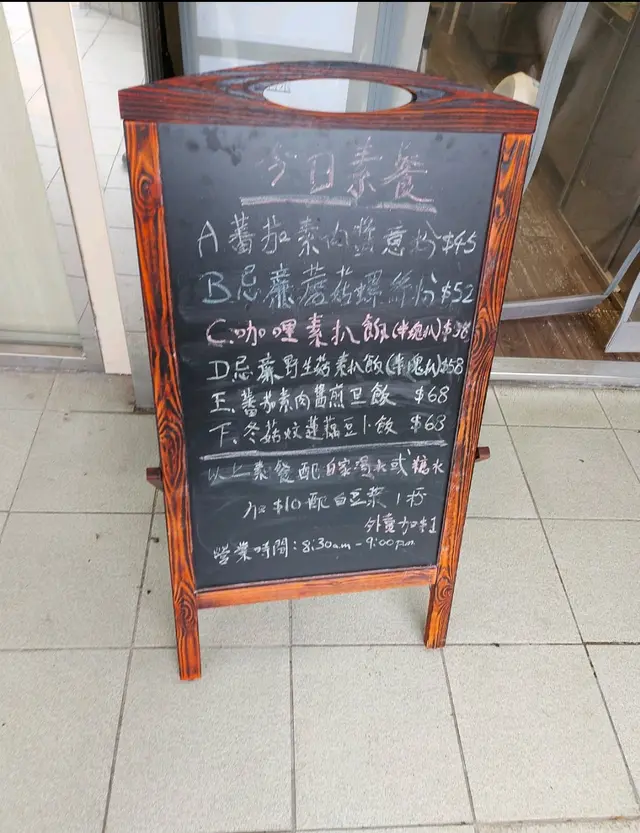 今日素餐
A 蕃茄素肉醬意粉 $45
B. 忌廉蘑菇螺絲粉 $52
C. 咖哩素扒飯(半塊扒) $38
D 忌廉野生菇素扒飯(半塊扒) $58
E. 蕃茄素肉醬煎旦飯 $68
F. 冬菇炆蓮藕豆卜飯 $68
以上素餐配自家湯水或糖水
加 $10 配白豆漿1杯
外賣加$1
營業時間：8:30am - 9:00pm